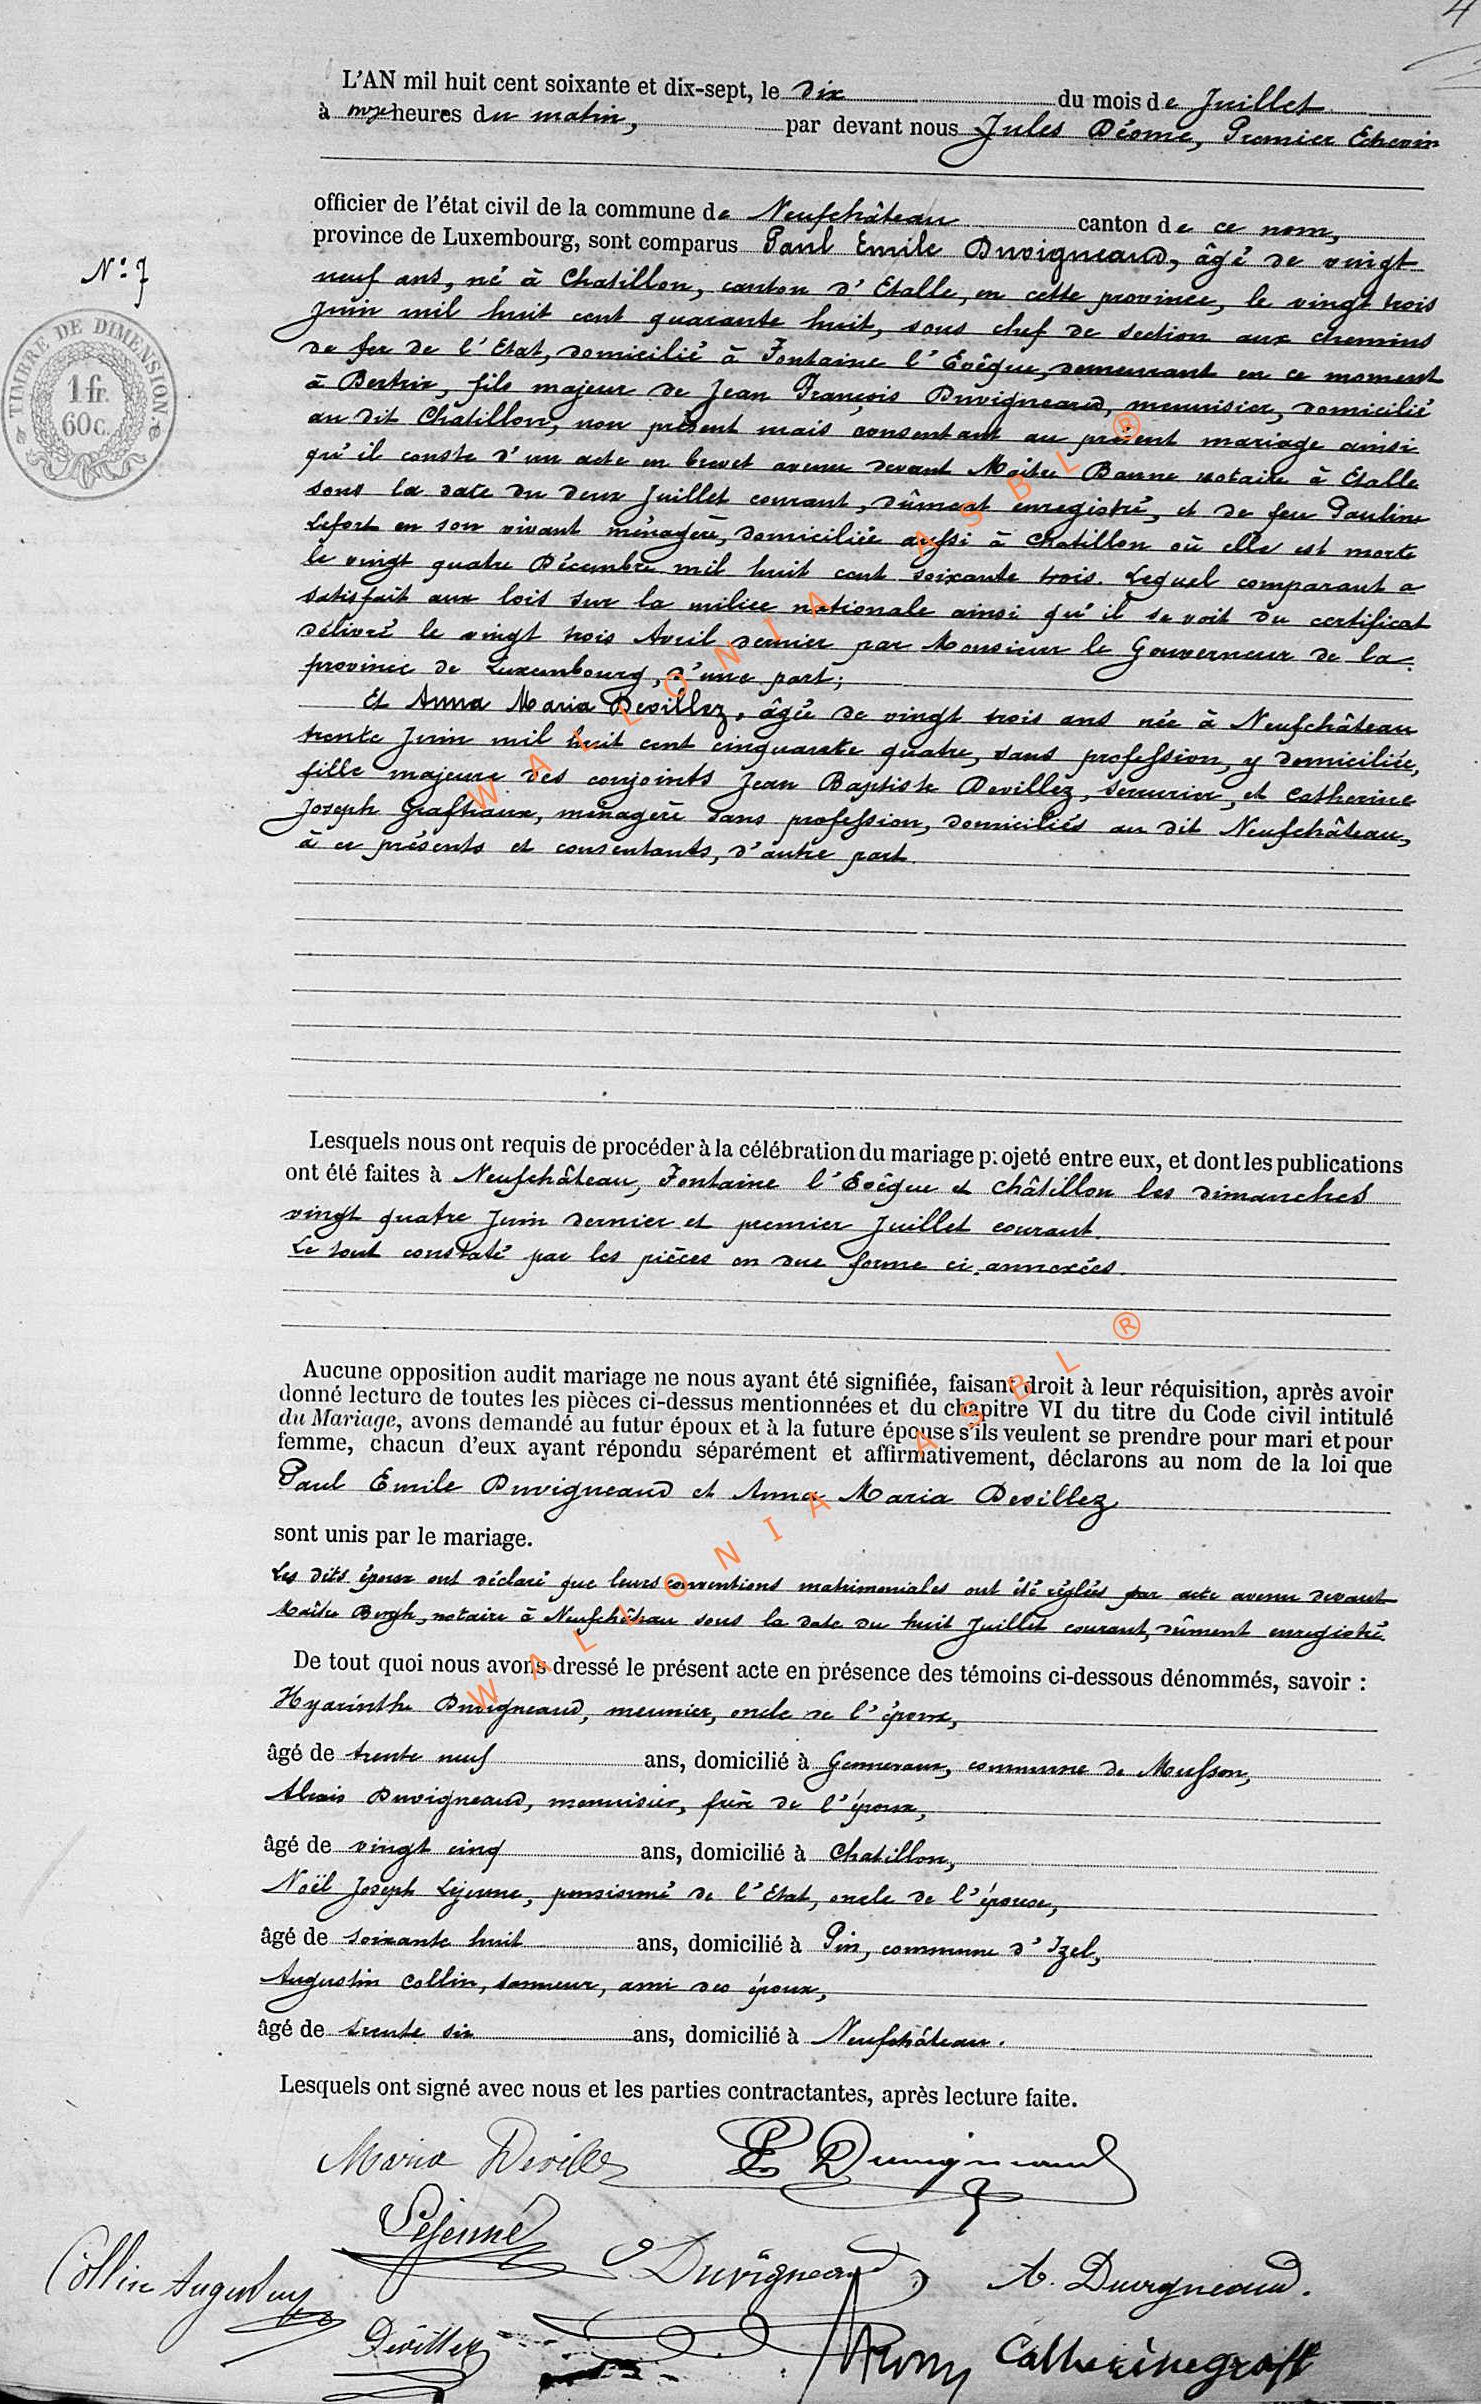 4
L'AN mil huit cent soixante et dix-sept, le dix du mois de Juillet
à onze heures du matin, par devant nous Jules Déome, Premier Echevin
officier de l'état civil de la commune de Neufchâteau canton de ce nom,
province de Luxembourg, sont comparus Paul Emile Duvigneaud, âgé de vingt
N° 7
neuf ans, né à Chatillon, canton d'Etalle, en cette province, le vingt trois
Juin mil huit cent quarante huit, sous chef de section aux chemins
de fer de l'Etat, domicilié à Fontaine l'Evêque, demeurant en ce moment
TIMBRE DE DIMENSION
1 fr.
60c.
à Bertrix, fils majeur de Jean François Duvigneaud, menuisier, domicilié
au dit Châtillon, non présent mais consentant au présent mariage ainsi
qu'il conste d'un acte en brevet avenu devant Maître Banne notaire à Etalle
sous la date du deux Juillet courant, dûment enregistré, et de feu Pauline
Lefort en son vivant ménagère, domiciliée aussi à Chatillon où elle est morte
le vingt quatre Décembre mil huit cent soixante trois. Lequel comparant a
satisfait aux lois sur la milice nationale ainsi qu'il se voit du certificat
délivré le vingt trois Avril dernier par Monsieur le Gouverneur de la
province de Luxembourg, d'une part;
Et Anna Maria Devillez, âgée de vingt trois ans née à Neufchâteau
trente Juin mil huit cent cinquante quatre, sans profession, y domiciliée,
fille majeure des conjoints Jean Baptiste Devillez, serrurier, et Catherine
Joseph Graftiaux, ménagère sans profession, domiciliés au dit Neufchâteau,
à ce présents et consentants, d'autre part.
Lesquels nous ont requis de procéder à la célébration du mariage p:ojeté entre eux, et dont les publications
ont été faites à Neufchâteau, Fontaine l'Evêque et Châtillon les dimanches
vingt quatre Juin dernier et premier Juillet courant.
Le tout constaté par les pièces en due forme ci-annexées.
Aucune opposition audit mariage ne nous ayant été signifiée, faisant droit à leur réquisition, après avoir
donné lecture de toutes les pièces ci-dessus mentionnées et du chapitre VI du titre du Code civil intitulé
du Mariage, avons demandé au futur époux et à la future épouse s'ils veulent se prendre pour mari et pour
femme, chacun d'eux ayant répondu séparément et affirmativement, déclarons au nom de la loi que
Paul Emile Duvigneaud et Anna Maria Devillez
sont unis par le mariage.
Les dits époux ont déclaré que leurs conventions matrimoniales ont été réglées par acte avenu devant
Maître Bergh, notaire à Neufchâteau sous la date du huit Juillet courant, dûment enregistré.
De tout quoi nous avons dressé le présent acte en présence des témoins ci-dessous dénommés, savoir :
Hyacinthe Duvigneaud, meunier, oncle de l'époux,
âgé de trente neuf ans, domicilié à Gennevaux, commune de Musson,
Alexis Duvigneaud, menuisier, frère de l'époux,
âgé de vingt cinq ans, domicilié à Chatillon,
Noël Joseph Lejeune, pensionné de l'Etat, oncle de l'épouse,
âgé de soixante huit ans, domicilié à Pin, commune d'Izel,
Augustin Collin, tanneur, ami des époux,
âgé de trente six ans, domicilié à Neufchâteau.
Lesquels ont signé avec nous et les parties contractantes, après lecture faite.
Maria Devillez P E Duvigneaud
Lejeune
Collin Augustin Duvigneaud A. Duvigneaud.
Devillez Catherine graft
WALLONIA ASBL ®
WALLONIA ASBL ®